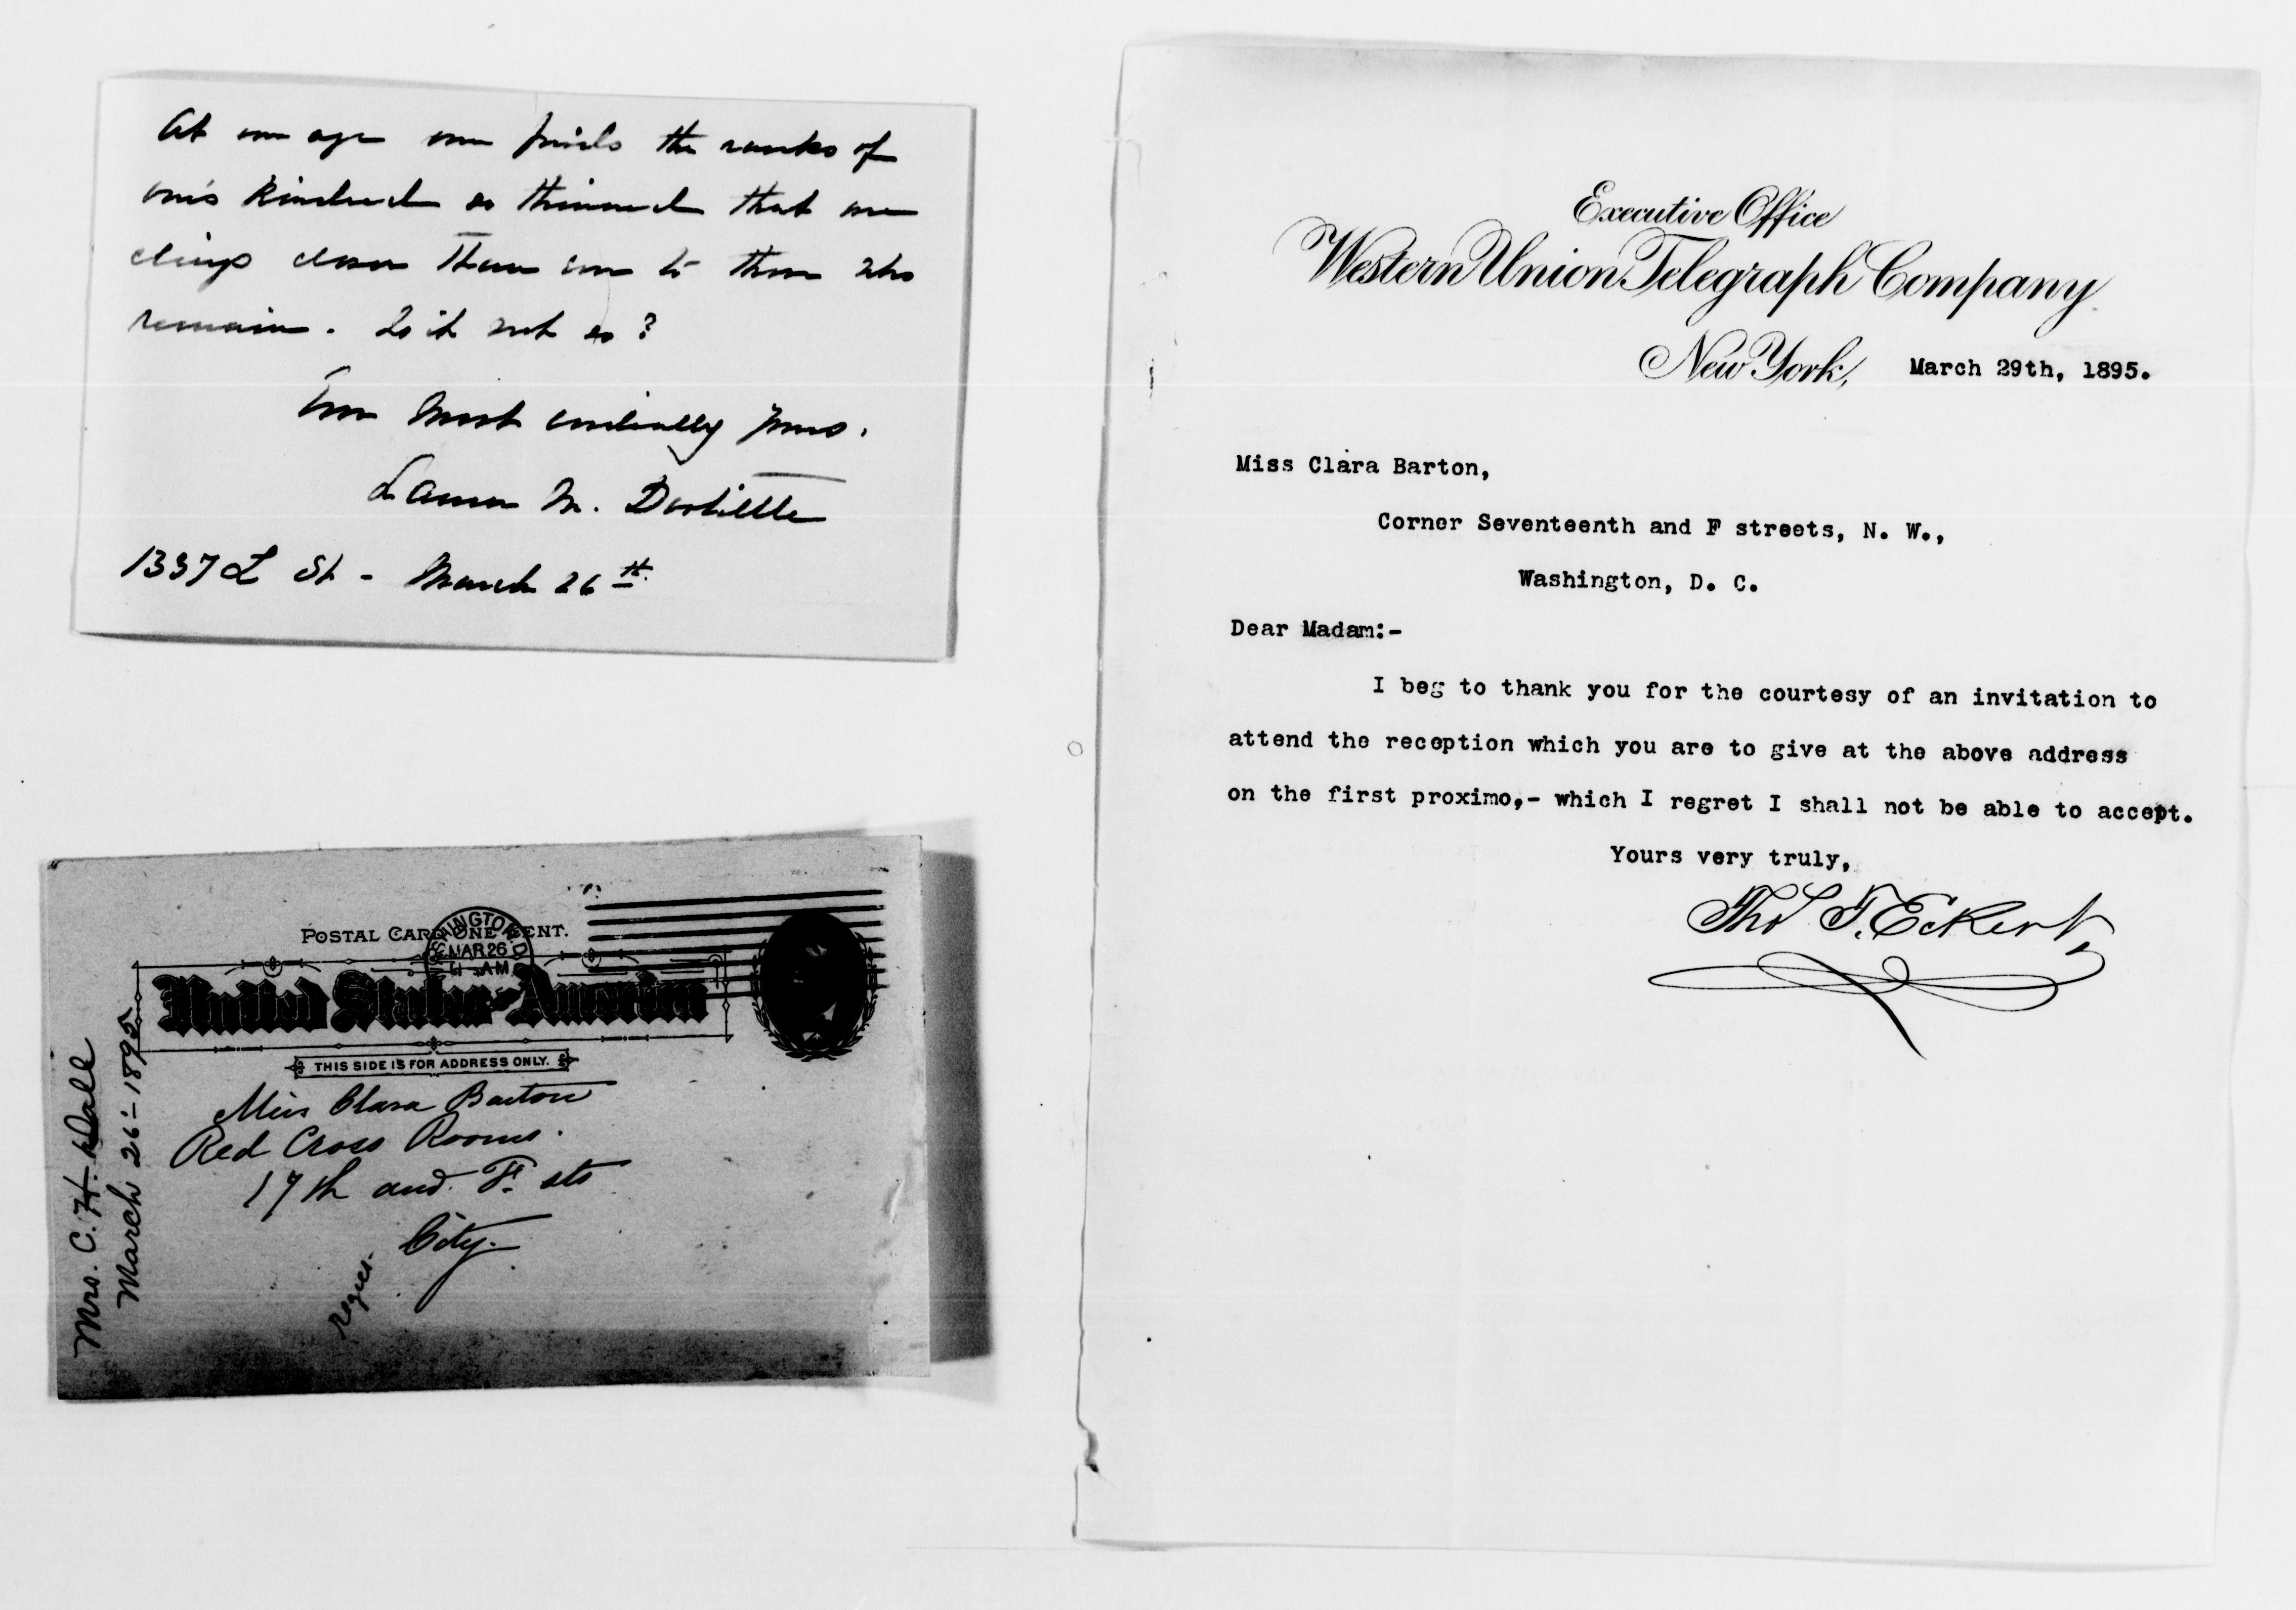 At our age one finds the ranks of
one's Kindred so thinned that one
clings closer than ever to those who
remain. Is it not so?
Ever most cordially yours.
Laura M.
1337 L St - March 26th
POSTAL CARD ONE CENT.
WASHINGTON, D.C.
MAR 26
AM
United States of America
THIS SIDE IS FOR ADDRESS ONLY.
Miss Clara Barton
Red Cross Rooms.
17th and F. sts
City.
Mrs. C. H. Dall
March 26 - 1895
Executive Office
Western Union Telegraph Company
New York, March 29th, 1895.
Miss Clara Barton,
Corner Seventeenth and F streets, N. W.,
Washington, D. C.
Dear Madam:-
I beg to thank you for the courtesy of an invitation to
attend the reception which you are to give at the above address
on the first proximo,- which I regret I shall not be able to accept.
Yours very truly,
Thos T. Eckert